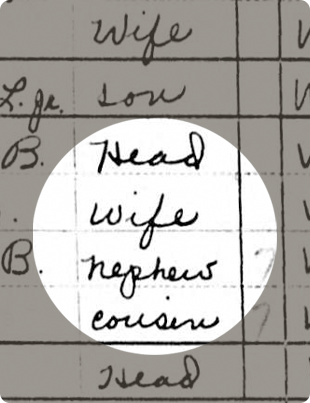 Wife
L. Jr. son
B. Head
Wife
B. nephew 7
cousin 7
Head